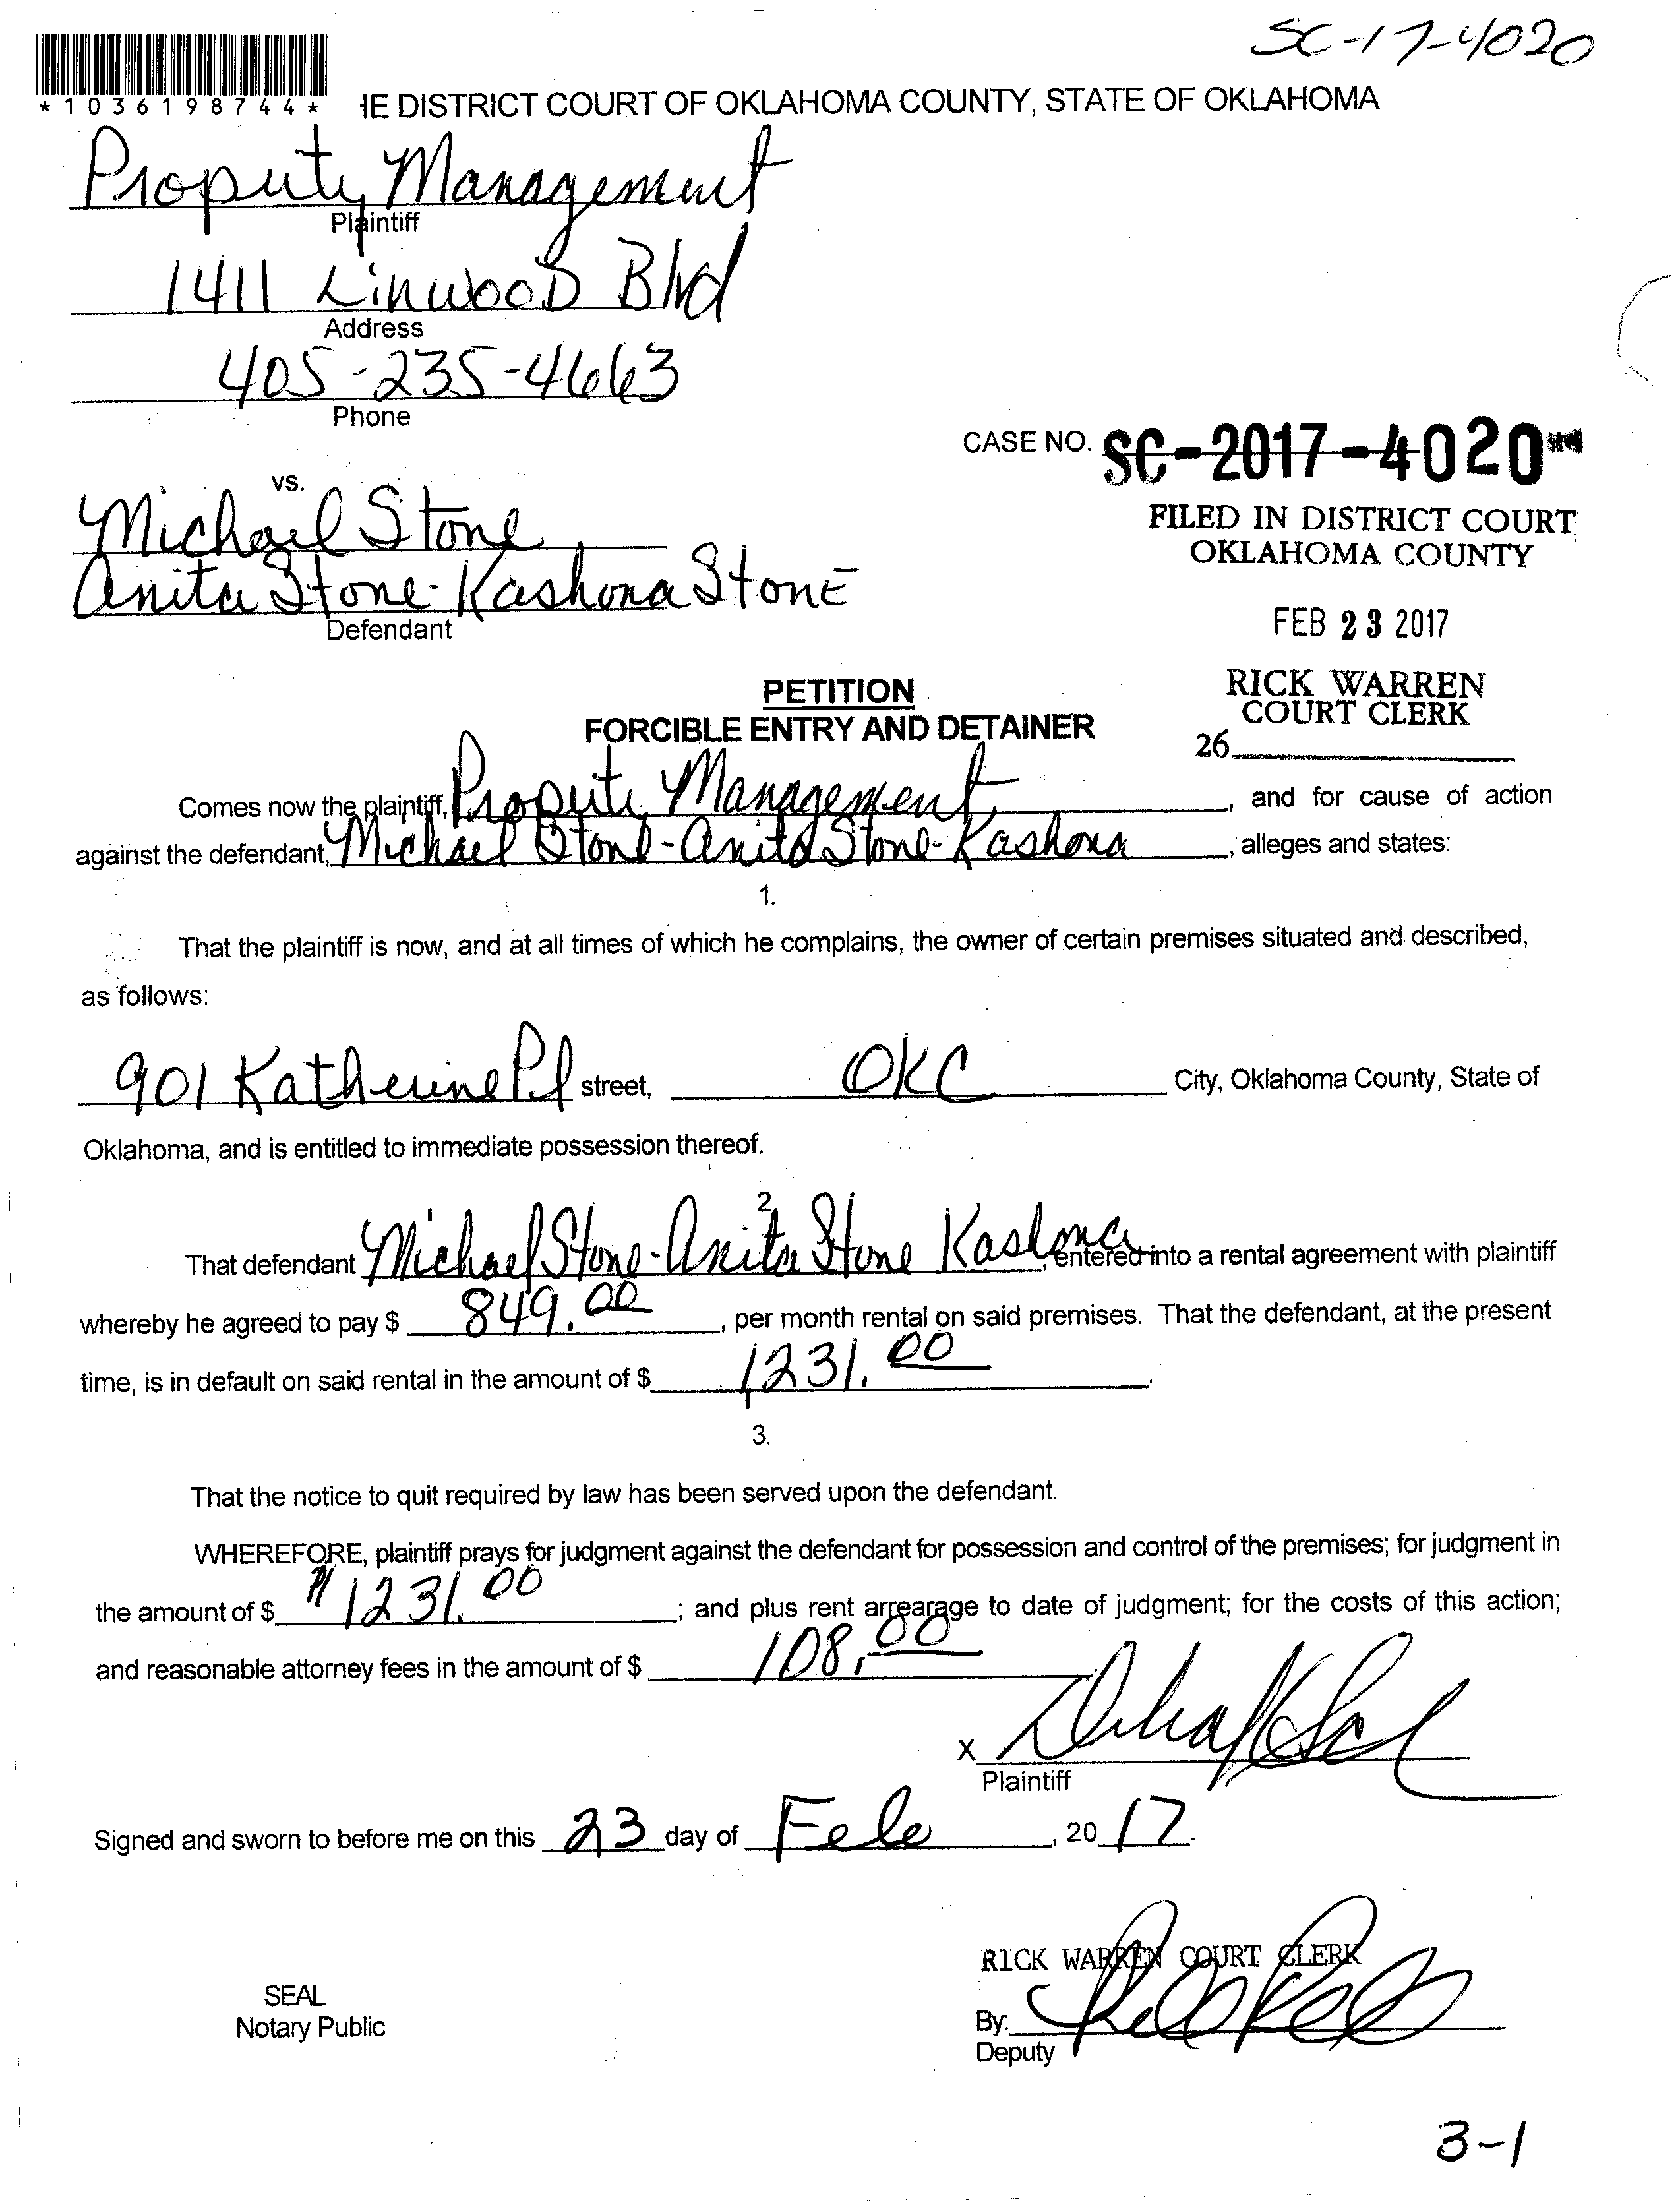 SC-17-4020
*1036198744*
HE DISTRICT COURT OF OKLAHOMA COUNTY, STATE OF OKLAHOMA
Property Management
Plaintiff
1411 Linwood Blvd
Address
405-235-4663
Phone
CASE NO. SC-2017-4020
vs.
FILED IN DISTRICT COURT
OKLAHOMA COUNTY
Michael Stone
Anita Stone-Kashona Stone
Defendant
FEB 23 2017
RICK WARREN
COURT CLERK
26
PETITION
FORCIBLE ENTRY AND DETAINER
Comes now the plaintiff, Property Management, and for cause of action
against the defendant, Michael Stone-Anita Stone-Kashona, alleges and states:
1.
That the plaintiff is now, and at all times of which he complains, the owner of certain premises situated and described,
as follows:
901 Katherine Pl street, OKC City, Oklahoma County, State of
Oklahoma, and is entitled to immediate possession thereof.
2
That defendant Michael Stone-Anita Stone Kashona, entered into a rental agreement with plaintiff
whereby he agreed to pay $ 849.00, per month rental on said premises. That the defendant, at the present
time, is in default on said rental in the amount of $ 1231.00.
3.
That the notice to quit required by law has been served upon the defendant.
WHEREFORE, plaintiff prays for judgment against the defendant for possession and control of the premises; for judgment in
the amount of $ $1231.00; and plus rent arrearage to date of judgment; for the costs of this action;
and reasonable attorney fees in the amount of $ 108.00
X
Plaintiff
Signed and sworn to before me on this 23 day of Feb, 2017.
RICK WARREN COURT CLERK
SEAL
Notary Public
By:
Deputy
3-1